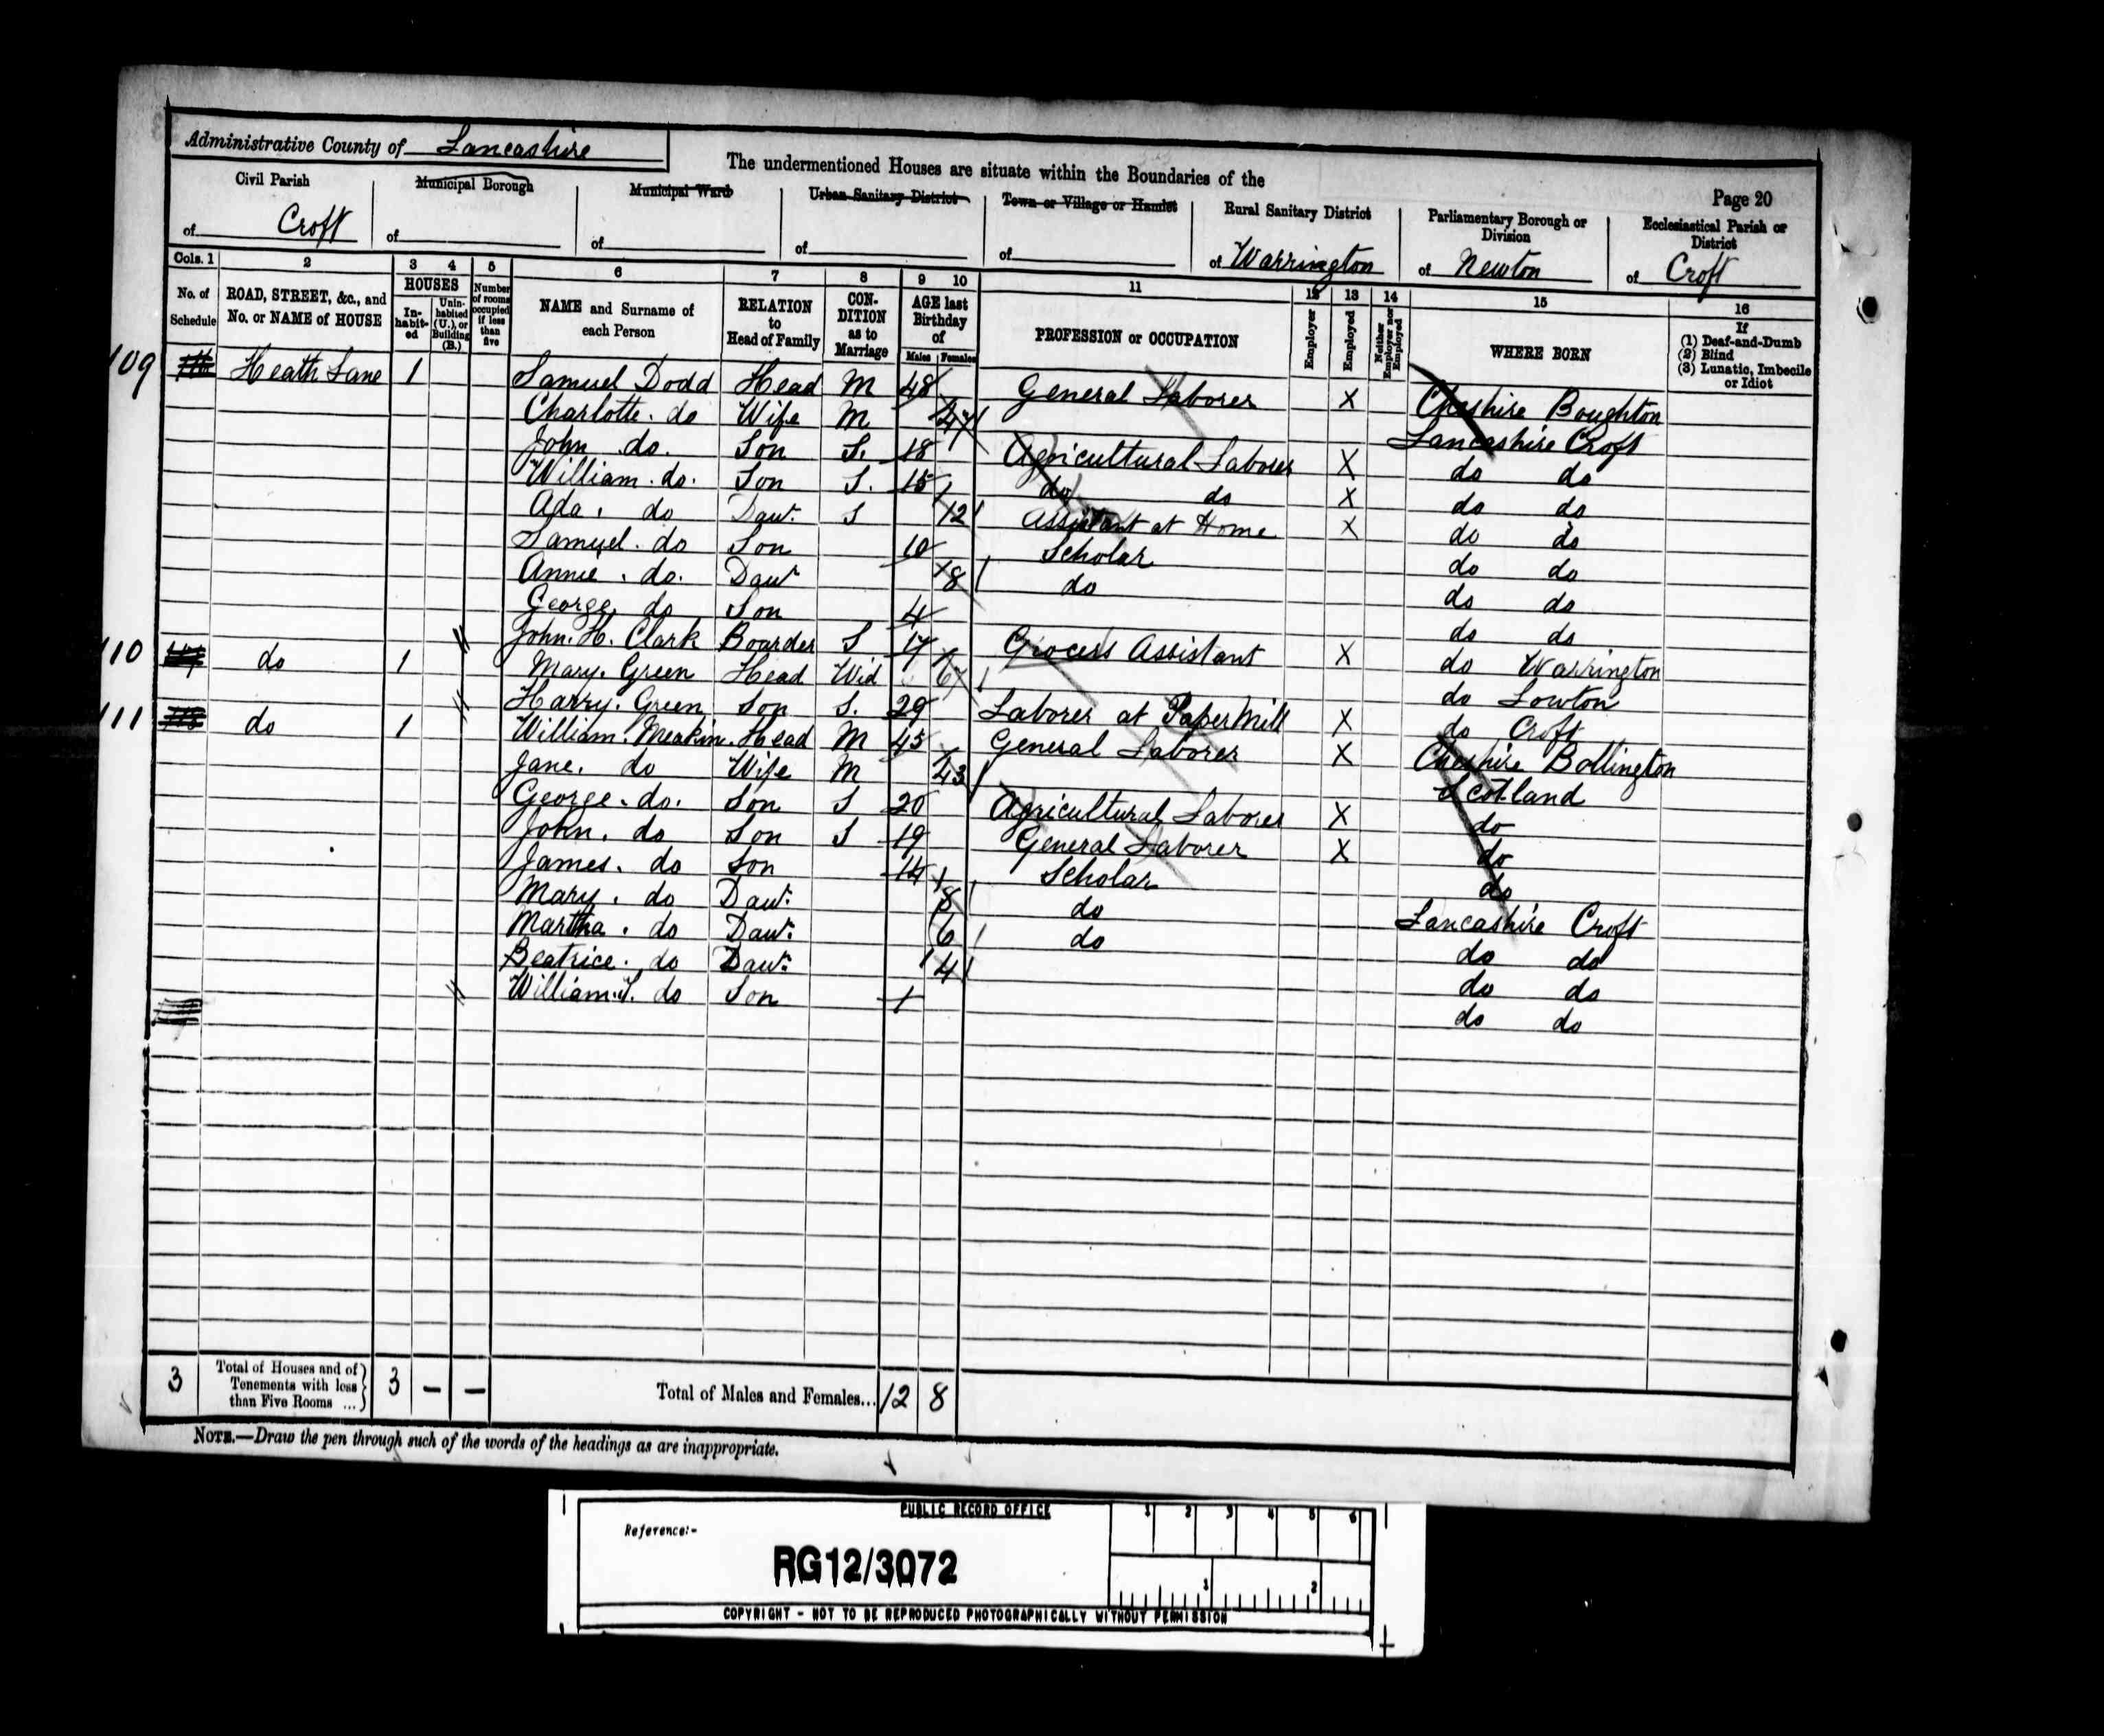 Administrative County of Lancashire
The undermentioned Houses are situate within the Boundaries of the
Page 20
Civil Parish of Croft
Municipal Borough of
Municipal Ward of
Urban Sanitary District of
Town or Village or Hamlet of
Rural Sanitary District of Warrington
Parliamentary Borough or Division of Newton
Ecclesiastical Parish or District of Croft
Cols. 1 2 3 4 5 6 7 8 9 10 11 12 13 14 15 16
No. of Schedule
ROAD, STREET, &c., and No. or NAME of HOUSE
HOUSES
In-habit-ed
Unin-habited (U.), or Building (B.)
Number of rooms occupied if less than five
NAME and Surname of each Person
RELATION to Head of Family
CON-DITION as to Marriage
AGE last Birthday of
Males Females
PROFESSION or OCCUPATION
Employer
Employed
Neither Employer nor Employed
WHERE BORN
If (1) Deaf-and-Dumb (2) Blind (3) Lunatic, Imbecile or Idiot
109 Heath Lane 1 Samuel Dodd Head M 48 General Laborer X Cheshire Boughton
Charlotte do Wife M 47 Lancashire Croft
John do. Son S. 18 Agricultural Laborer X do do
William do. Son S. 15 do do X do do
Ada do Daur. S 12 Assistant at Home X do do
Samuel do Son 10 Scholar do do
Annie do. Daur 8 do do do
George do Son 4 do do
John. H. Clark Boarder S 17 Grocers Assistant X do Warrington
110 do 1 Mary. Green Head Wid do Lowton
Harry. Green Son S. 29 Laborer at Paper Mill X do Croft
111 do 1 William. Meakin. Head M 45 General Laborer X Cheshire Bollington
Jane. do Wife M 43 Scotland
George. do. Son S 20 Agricultural Laborer X do
John. do Son S 19 General Laborer X do
James. do Son 14 Scholar do
Mary. do Daur. 8 do Lancashire Croft
Martha. do Daur. 6 do do do
Beatrice. do Daur. 4 do do
William. do Son 1 do do
3 Total of Houses and of Tenements with less than Five Rooms ... 3 – – Total of Males and Females... 12 8
NOTE.—Draw the pen through such of the words of the headings as are inappropriate.
PUBLIC RECORD OFFICE
1 2 3 4 5 6
Reference:-
RG12/3072
1 2
COPYRIGHT - NOT TO BE REPRODUCED PHOTOGRAPHICALLY WITHOUT PERMISSION